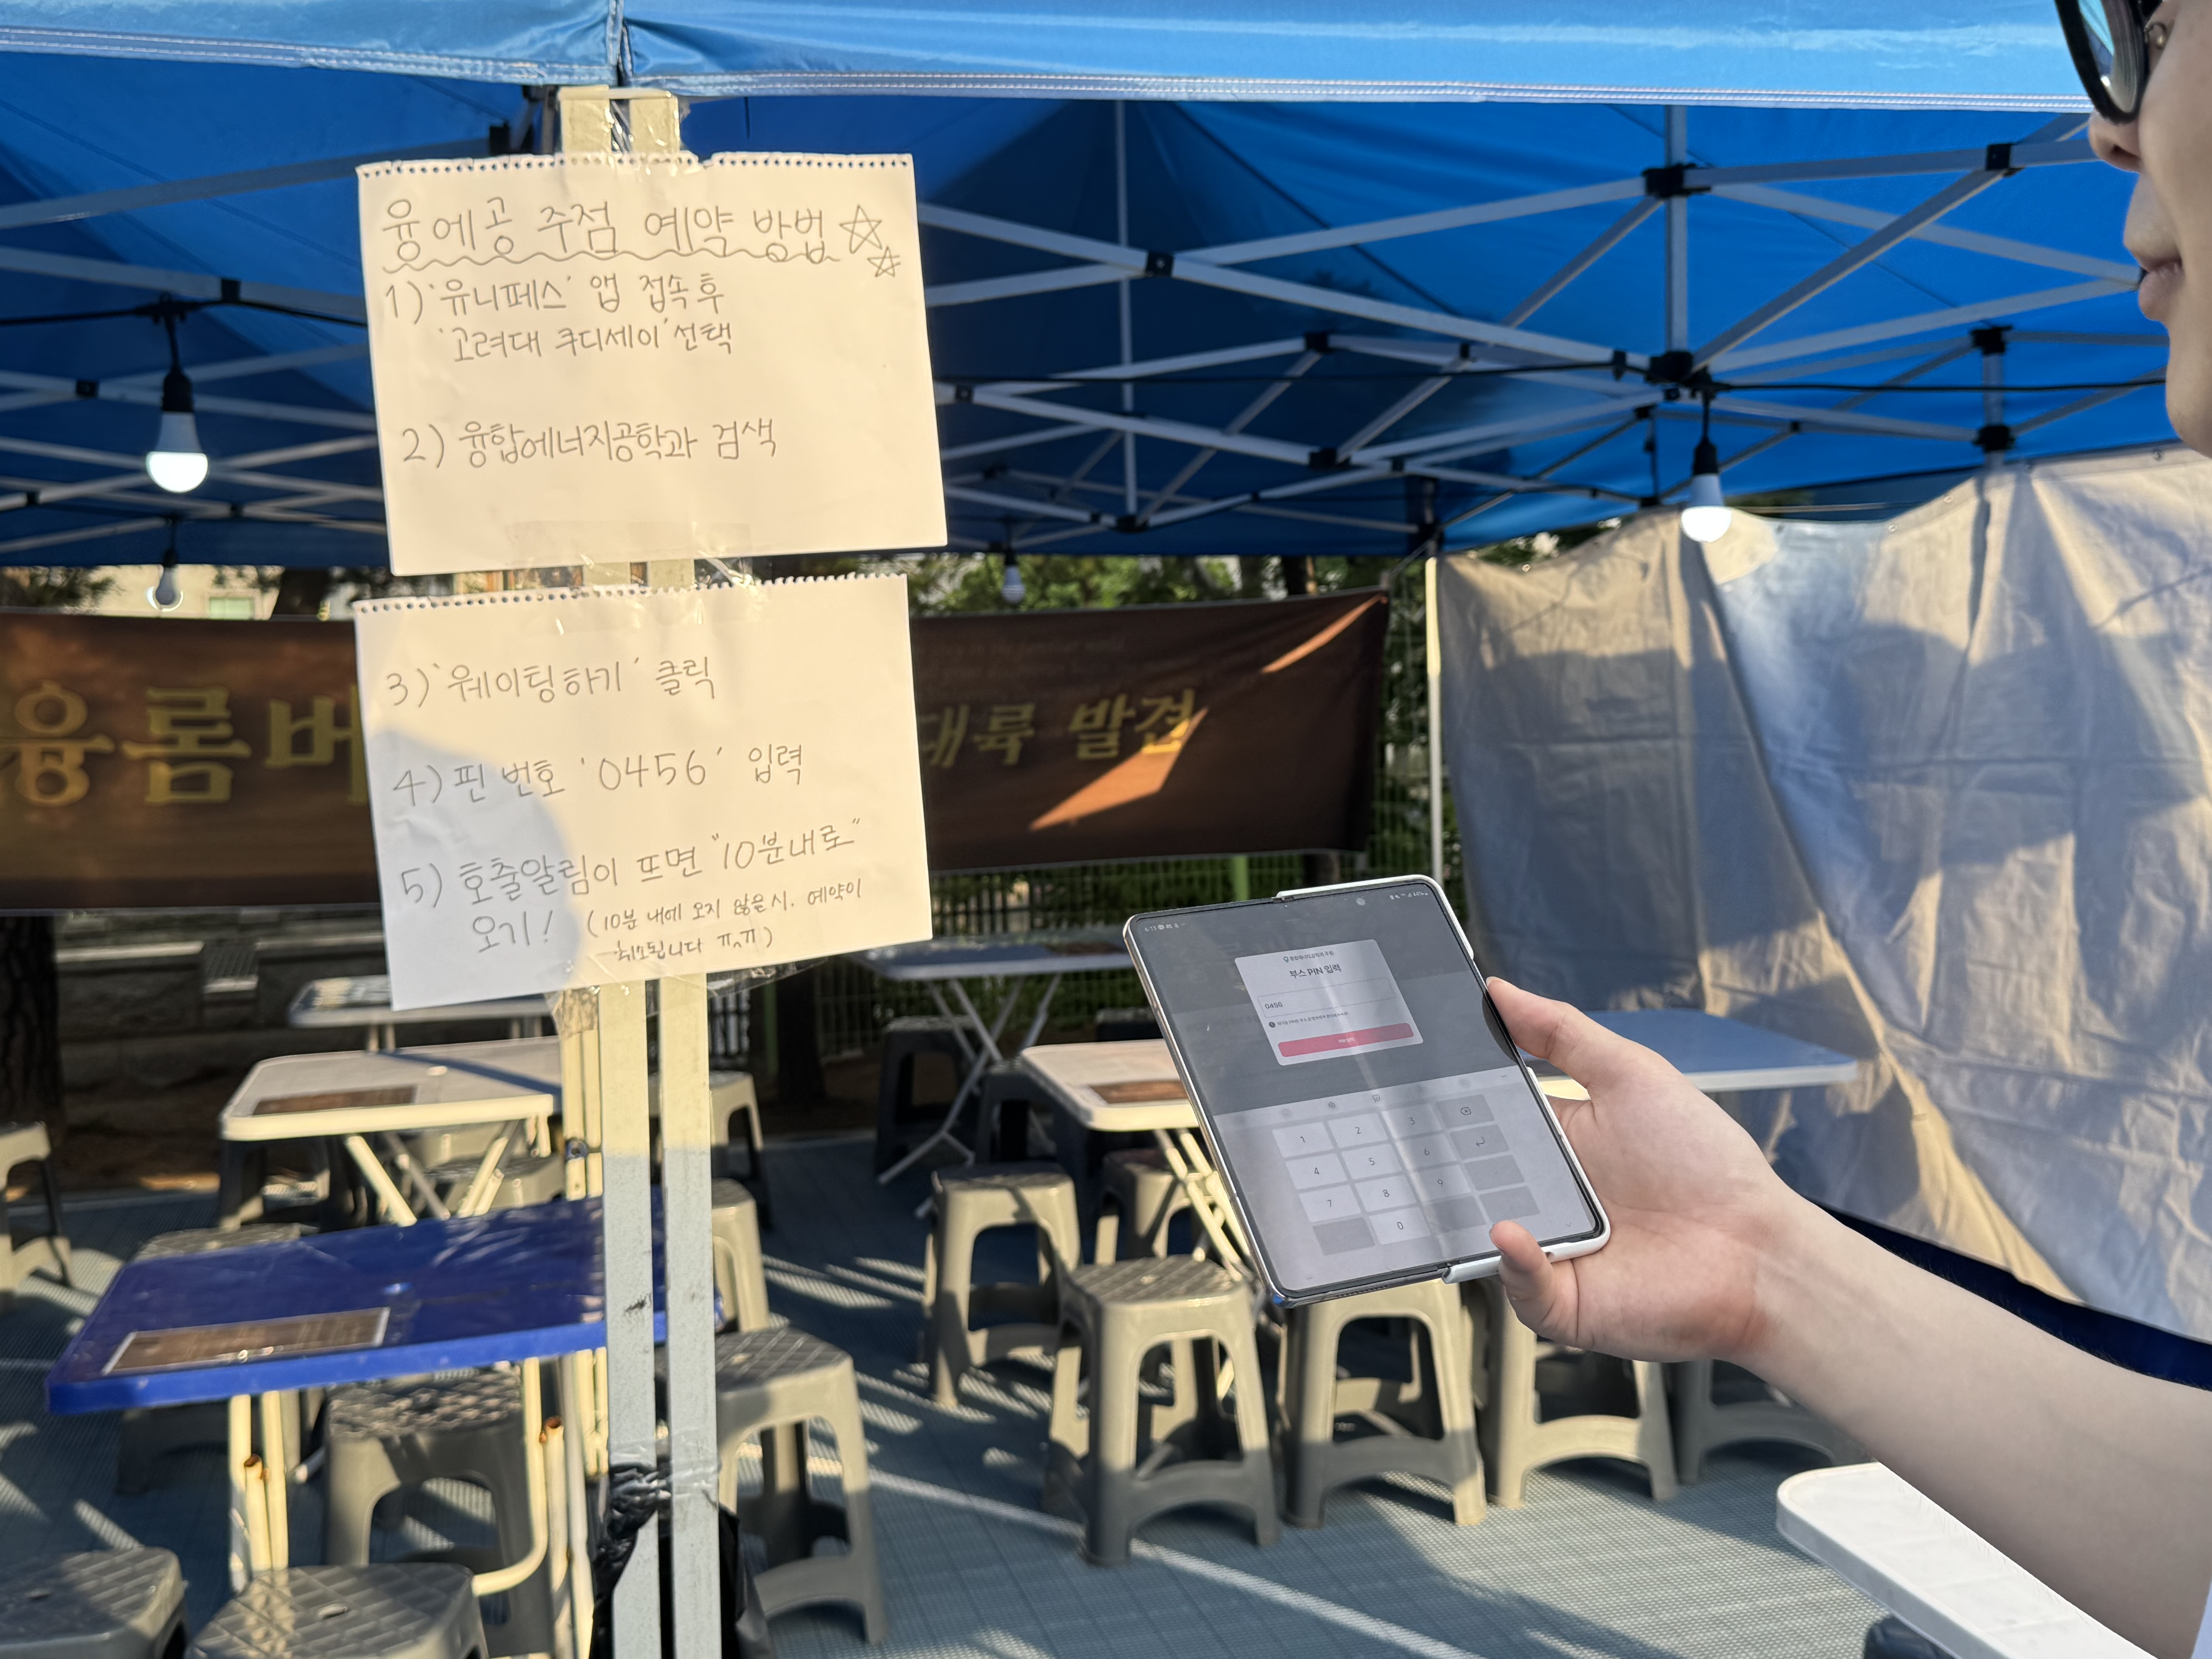 융에공 주점 예약 방법
1) '유니페스' 앱 접속 후
'고려대 쿠디세이' 선택
2) 융합에너지공학과 검색
3) '웨이팅하기' 클릭
4) 핀 번호 '0456' 입력
5) 호출알림이 뜨면 "10분내로"
오기! (10분 내에 오지 않을시. 예약이
취소됩니다 ㅠㅅㅠ)
융롬버
대륙 발견
부스 PIN 입력
0456
1 2 3
4 5 6
7 8 9
0